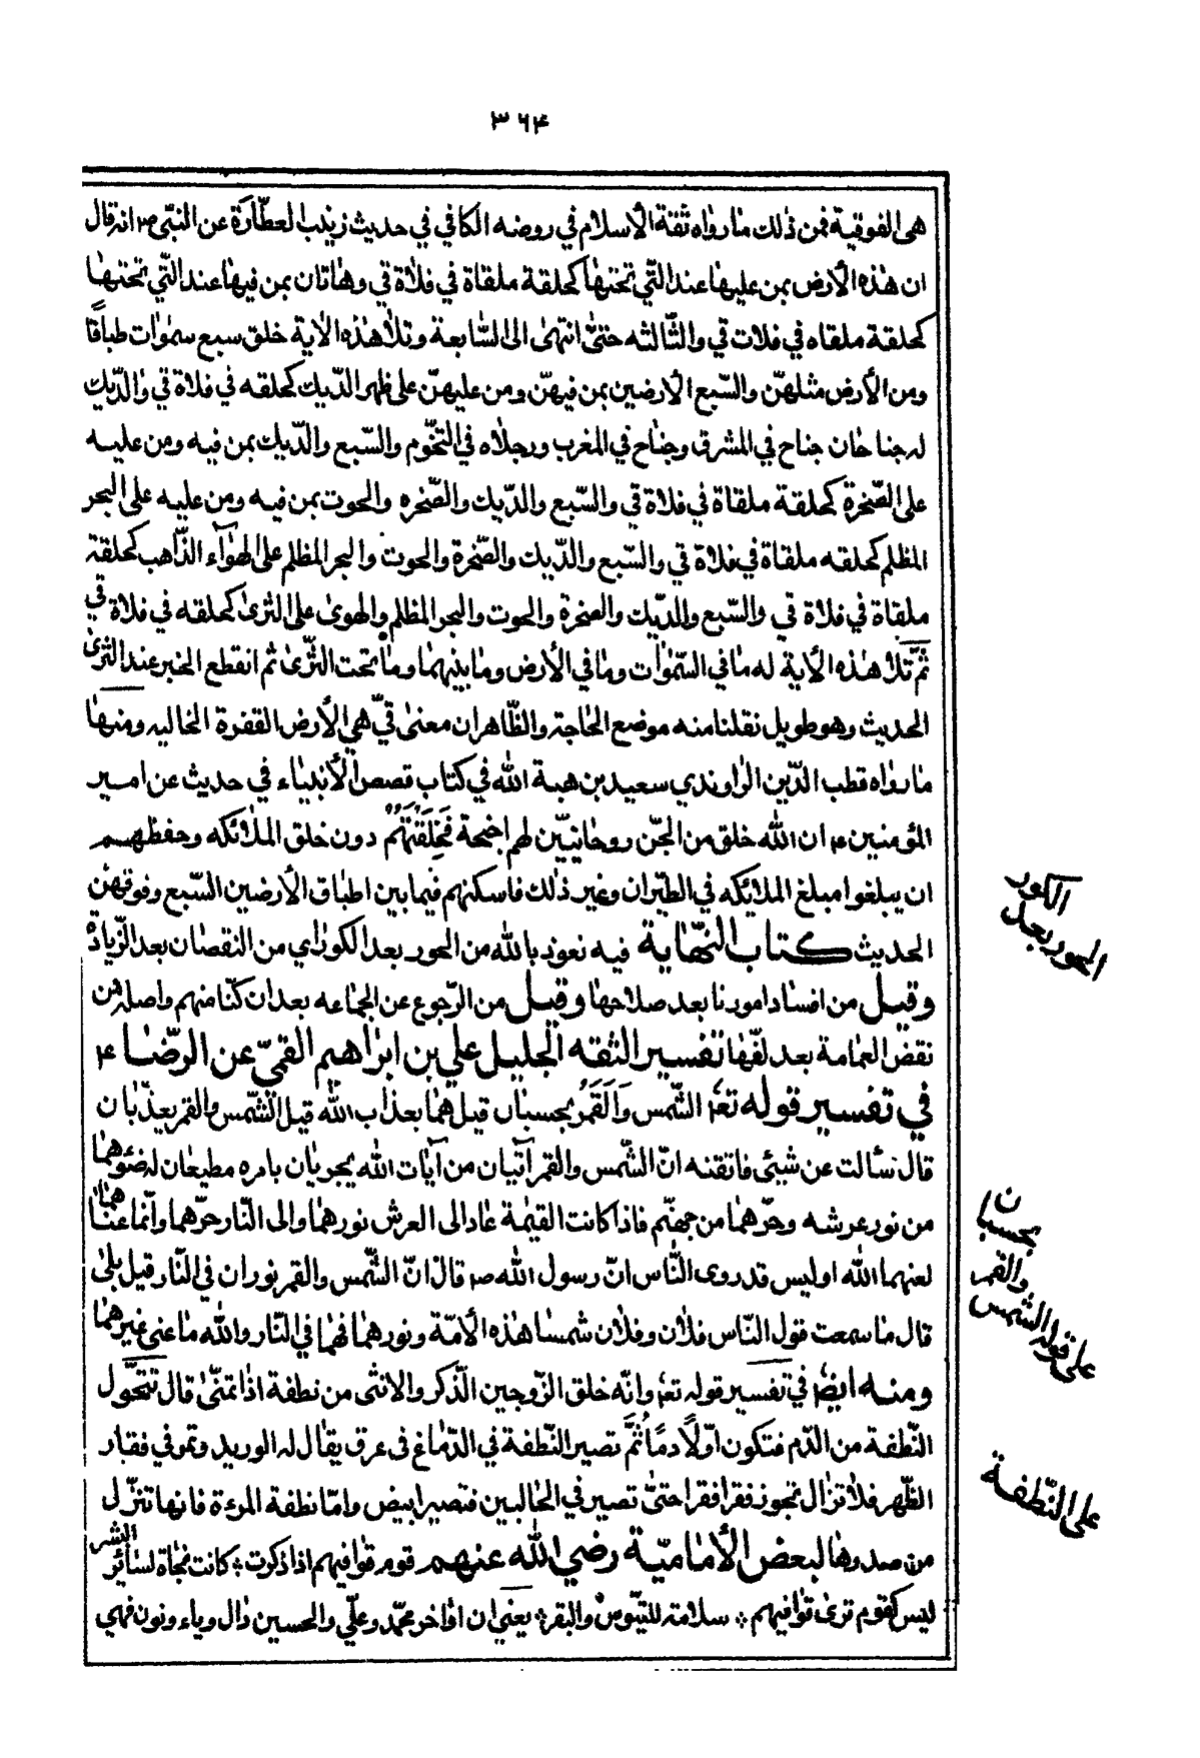 ٣٦٤
هى الفوقية فمن ذلك ما رواه ثقة الأسلام في روضه الكافي في حديث زينب العطّارة عن النبّى ص انه قال
ان هذه الأرض بمن عليها عند الّتي تحتها كحلقة ملقاة في فلاة قي وهاتان بمن فيها عند الّتي تحتها
كحلقة ملقاه في فلات قي والثّالثه حتىّ انتهى الى السّابعة وتلا هذه الأية خلق سبع سموات طباقًا
ومن الأرض مثلهنّ والسّبع الأرضين بمن فيهنّ ومن عليهنّ على ظهر الدّيك كحلقه في فلاة قي والدّيك
له جناحان جناح في المشرق وجناح في المغرب ورجلاه في التخّوم والسّبع والدّيك بمن فيه ومن عليه
على الصّخرة كحلقة ملقاة في فلاة قي والسّبع والدّيك والصّخره والحوت بمن فيه ومن عليه على البحر
المظلم كحلقه ملقاة في فلاة قي والسّبع والدّيك والصّخرة والحوت والبحر المظلم على الهوآء الذّاهب كحلقة
ملقاة في فلاة قي والسّبع والديّك والصخرة والحوت والبحر المظلم والهوى على الثرى كحلقه في فلاة قي
ثمّ تلا هذه الأية له ما في السّموات وما في الأرض وما بينهما وما تحت الثّرى ثم انقطع الخبر عند الثرى
الحديث وهو طويل نقلنا منه موضع الحاجة والظّاهر ان معنى قيّ هي الأرض القفرة الخاليه ومنها
ما رواه قطب الدّين الراوندي سعيد بن هبة الله في كتاب قصص الأنبياء في حديث عن امير
المؤمنين ع ان الله خلق من الجنّ روحانييّن لهم اجنحة فَخِلَقَتُهُم دون خلق الملائكه وحفظهم
ان يبلغوا مبلغ الملايكه في الطيّران وغير ذلك فاسكنهم فيما بين اطباق الأرضين السّبع وفوقهنّ
الحديث كتاب النهّاية فيه نعوذ بالله من الحور بعد الكور اي من النقصان بعد الزّيادة
وقيل من افساد امورنا بعد صلاحها وقيل من الرّجوع عن الجماعه بعد ان كنّا منهم واصله من
نقض العمامة بعد لفّها تفسير الثقه الجليل علي بن ابراهيم القمّي عن الرضّا ع
في تفسير قوله تع الشّمس وَالَقَمَرُ بحسبان قيل هما بعذاب الله قيل الشّمس والقمر يعذّبان
قال سألت عن شيئ فاتقنه انّ الشّمس والقمر آتيان من آيات الله يجريان بامره مطيعان له ضوءهما
من نور عرشه وحرّهما من جهنّم فاذا كانت القيمة عاد الى العرش نورهما والى النّار حرّهما وانّما عناهما
لعنهما الله اوليس قد روى النّاس انّ رسول الله ص قال انّ الشّمس والقمر نوران في النّار قيل بلى
قال ما سمعت قول النّاس فلان وفلان شمسا هذه الأمّة ونورهما فهما في النّار والله ما عنى غيرهما
ومنه ايضا في تفسير قوله تع وانّه خلق الزّوجين الّذكر والانثى من نطفة اذا تمنّى قال تتحّول
النّطفة من الدّم فتكون اوّلاً دمًا ثُمّ تصير النّطفة في الدّماغ فى عرق يقال له الوريد وتمر في فقار
الظّهر فلا تزال تجوز فقرا فقرا حتىّ تصير في الحالبين فتصير ابيض وامّا نطفة المرءة فانها تنزّل
من صدرها لبعض الأماميّة رضي الله عنهم قوم قوافيهم اذا ذكرت * كانت نجاة لسائر البشر
ليس كقوم ترى قوافيهم * سلامة للتيّوس والبقر * يعني ان اواخر محمّد وعلّي والحسين دال وياء ونون فهي
الكور
الحور بعد
بحسبان
والقمر
على قوله الشمس
على النّطفة